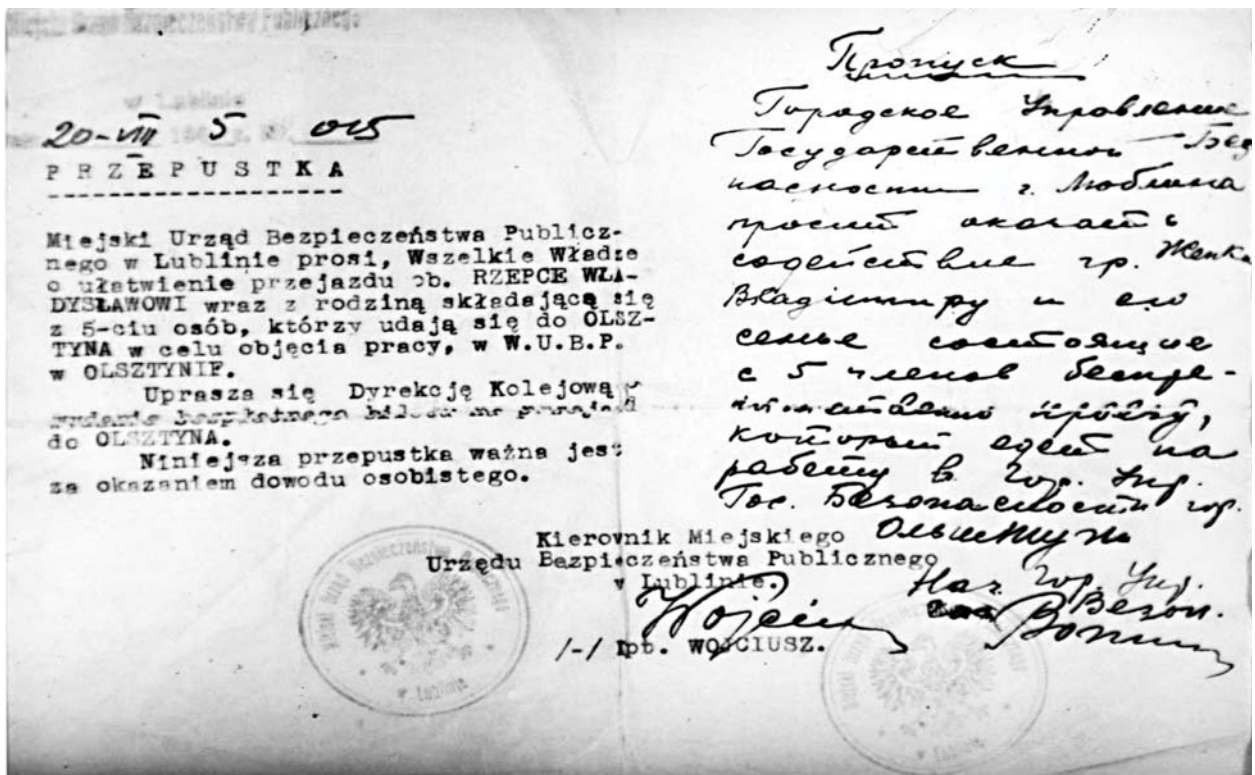 Miejski Urząd Bezpieczeństwa Publicznego
w Lublinie
20-VIII 5 015
PRZEPUSTKA
Miejski Urząd Bezpieczeństwa Publicz-
nego w Lublinie prosi, Wszelkie Władze
o ułatwienie przejazdu ob. RZEPCE WŁA-
DYSŁAWOWI wraz z rodziną składającą się
z 5-ciu osób, którzy udają się do OLSZ-
TYNA w celu objęcia pracy, w W.U.B.P.
w OLSZTYNIE.
Uprasza się Dyrekcję Kolejową
wydanie bezpłatnego biletu na przejazd
do OLSZTYNA.
Niniejsza przepustka ważna jest
za okazaniem dowodu osobistego.
Kierownik Miejskiego
Urzędu Bezpieczeństwa Publicznego
w Lublinie.
/-/ ppt. WOJCIUSZ.
Пропуск
Городское Управление
Государственной Без
пасности г. Люблина
просит оказать
содействие гр.
Владимиру и его
семье состоящие
с 5 членов беспре-
который едет на
работу в Гор. Упр.
Гос. Безопасности гор.
Ольштун
Нач. Гор. Упр.
Безоп.
Miejski Urząd Bezpieczeństwa Publicznego
w Lublinie
w Lublinie